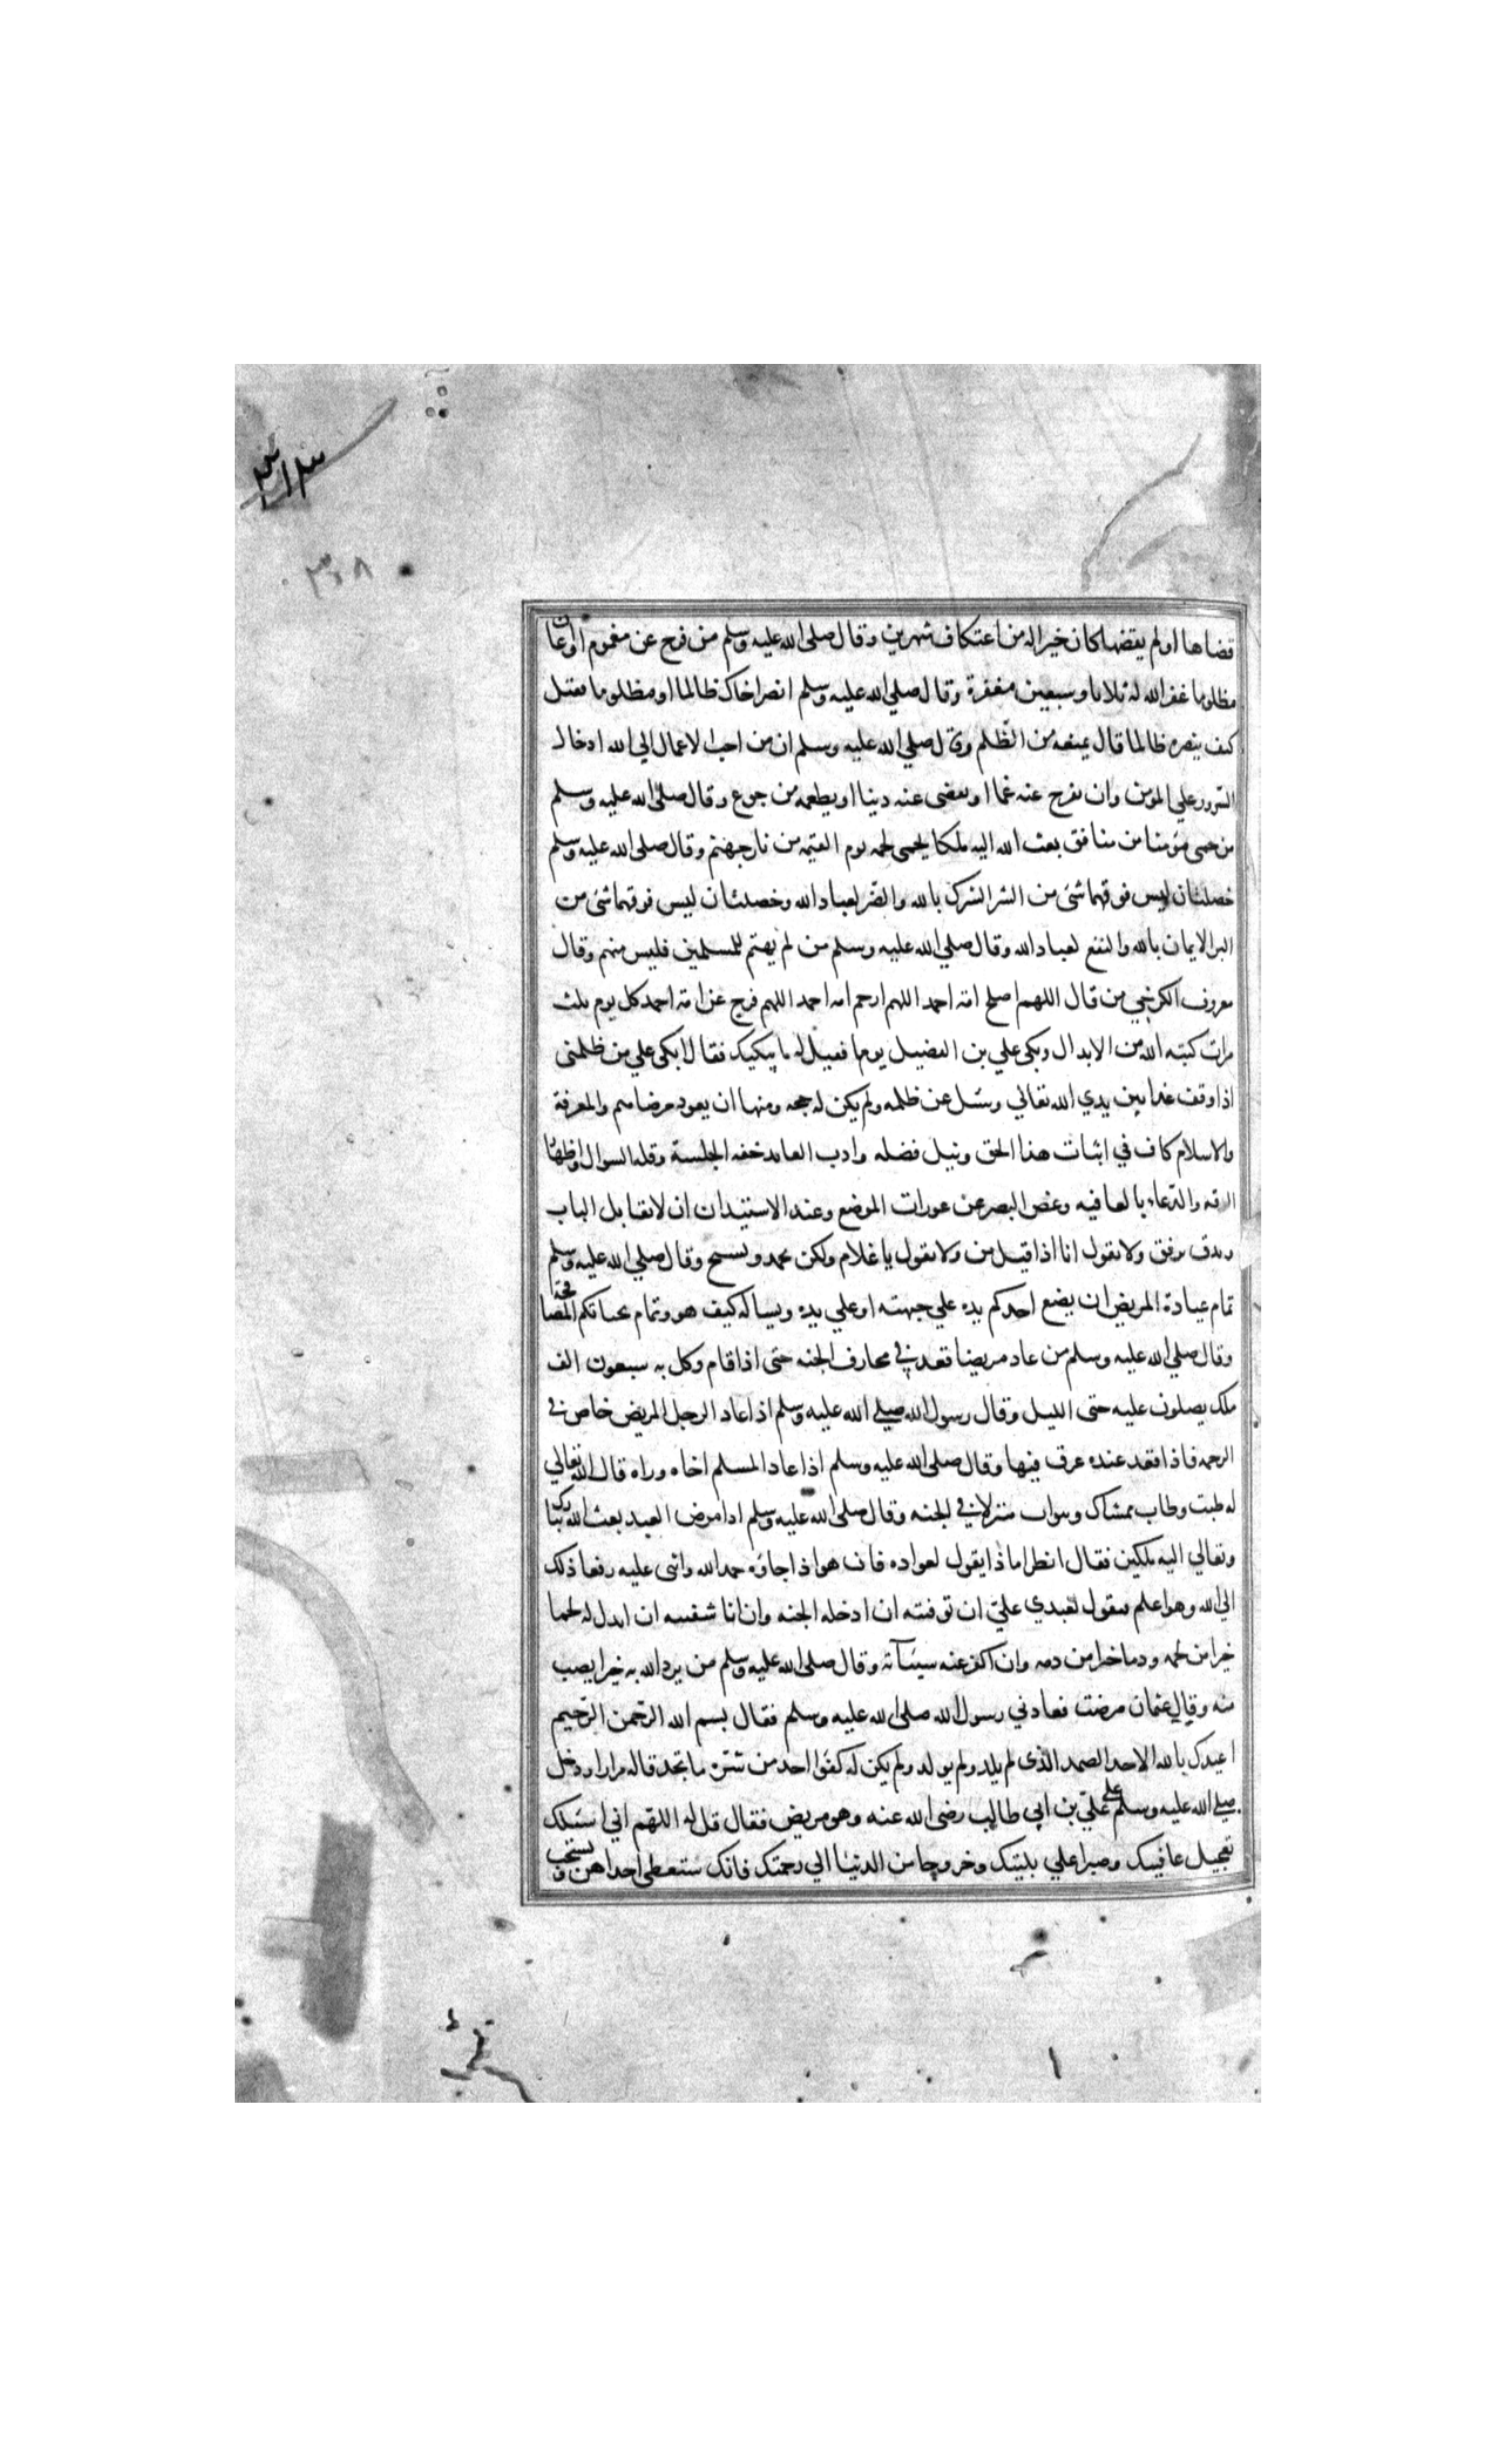 ٣١٣
٣٠٨
قضاها او لم يقضها كان خيرا له من اعتكاف شهرين وقال صلى الله عليه وسلم من فرج عن مغموم او اعان
مظلوما غفر الله له ثلاثا وسبعين مغفرة وقال صلي الله عليه وسلم انصر اخاك ظالما او مظلوما فقيل
كيف ينصره ظالما قال يمنعه من الظلم وقال صلي الله عليه وسلم ان من احب الاعمال الي الله ادخال
السرور علي المومن وان يفرج عنه غما او يقضى عنه دينا او يطعمه من جوع وقال صلي الله عليه وسلم
من حمى مؤمنا من منافق بعث الله اليه ملكا يحمى لحمه يوم القيمه من نار جهنم وقال صلى الله عليه وسلم
خصلتان ليس فوقهما شئ من الشر الشرك بالله والضر لعباد الله وخصلتان ليس فوقهما شئ من
البر الايمان بالله والنفع لعباد الله وقال صلي الله عليه وسلم من لم يهتم للمسلمين فليس منهم وقال
معروف الكرخي من قال اللهم اصلح امة احمد اللهم ارحم امه احمد اللهم فرج عن امة احمد كل يوم ثلث
مرات كتبه الله من الابدال وبكى علي بن الفضيل يوما فقيل له ما يبكيك فقال ابكى علي من ظلمنى
اذا وقف غدا بين يدي الله تعالي وسئل عن ظلمه ولم يكن له حجه ومنها ان يعود مرضاهم والمعرفة
والاسلام كاف في اثبات هذا الحق ونيل فضله وادب العايد خفه الجلسة وقله السوال واظهار
الرقه والدعاء بالعافيه وغض البصر عن عورات الموضع وعند الاستيذان ان لا يقابل الباب
ويدق برفق ولا يقول انا اذا قيل من ولا يقول يا غلام ولكن يحمد ويسبح وقال صلي الله عليه وسلم
تمام عيادة المريض ان يضع احدكم يده علي جبهته او علي يده ويساله كيف هو وتمام تحياتكم المصافحة
وقال صلي الله عليه وسلم من عاد مريضا قعد في مخارف الجنه حتى اذا قام وكل به سبعون الف
ملك يصلون عليه حتى الليل وقال رسول الله صلي الله عليه وسلم اذا عاد الرجل المريض خاض في
الرحمه فاذا قعد عنده غرق فيها وقال صلى الله عليه وسلم اذا عاد المسلم اخاه وراه قال الله تعالي
له طبت وطاب ممشاك وبوات منزلا في الجنه وقال صلى الله عليه وسلم اذا مرض العبد بعث الله تبارك
وتعالي اليه ملكين فقال انظرا ماذا يقول لعواده فان هو اذا جاؤه حمد الله واثنى عليه رفعا ذلك
الي الله وهو اعلم فيقول لعبدي علي ان توفيته ان ادخله الجنه وان انا شفيته ان ابدل له لحما
خيرا من لحمه ودما خيرا من دمه وان اكفر عنه سيئاته وقال صلي الله عليه وسلم من يرد الله به خيرا يصب
منه وقال عثمان مرضت فعادني رسول الله صلى الله عليه وسلم فقال بسم الله الرحمن الرحيم
اعيذك بالله الاحد الصمد الذى لم يلد ولم يولد ولم يكن له كفوا احد من شر ما تجد قاله مرارا ودخل
صلي الله عليه وسلم على علي بن ابي طالب رضى الله عنه وهو مريض فقال قل له اللهم اني اسئلك
تعجيل عافيتك وصبرا علي بليتك وخروجا من الدنيا الي رحمتك فانك ستعطى احداهن ويستحب